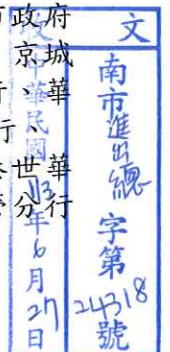 文
南市進出總字第24318號
中華民國113年6月27日
政府
京城
華
行、
世華
分行